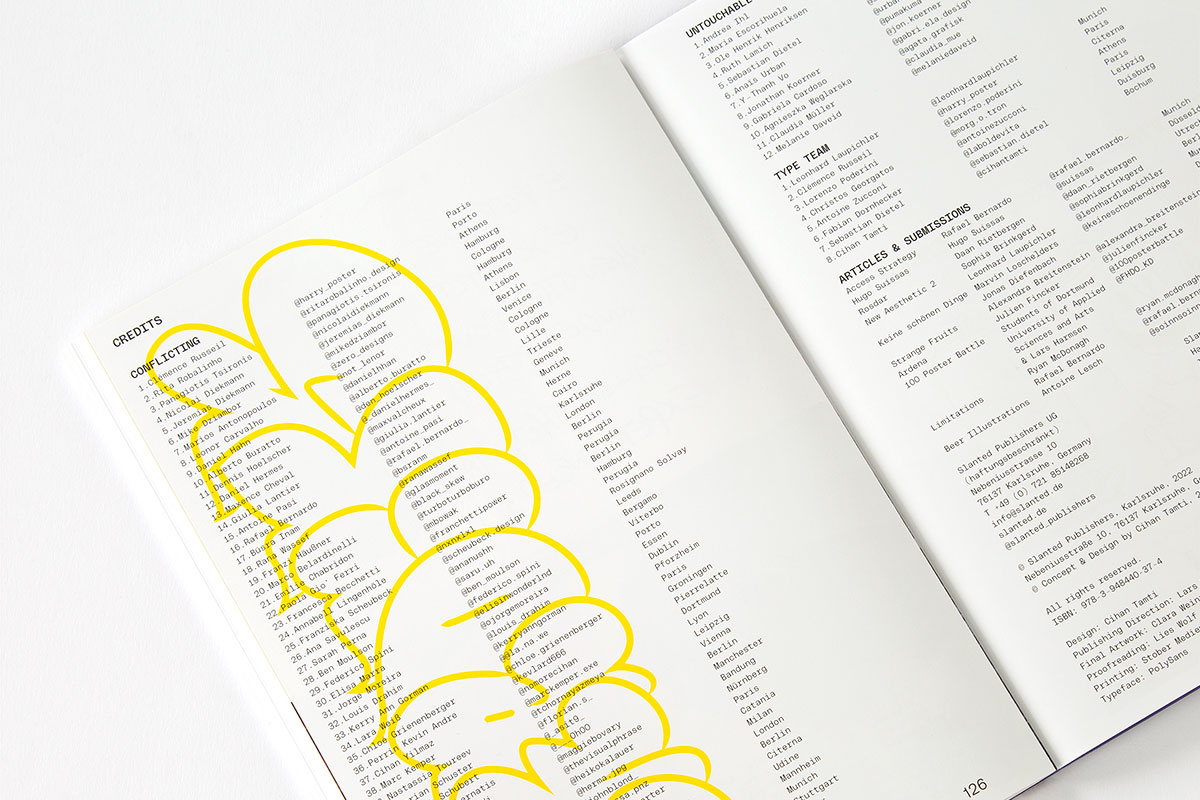 CREDITS
CONFLICTING
1.Clémence Russeil
2.Rita Robalinho
3.Panagiotis Tsironis
4.Nicolai Diekmann
5.Jeremias Diekmann
6.Mike Dziambor
7.Marios Antonopoulos
8.Leonor Carvalho
9.Daniel Hahn
10.Alberto Buratto
11.Dennis Hoelscher
12.Daniel Hermes
13.Maxence Cheval
14.Giulia Lantier
15.Antoine Pasi
16.Rafael Bernardo
17.Büsra Inam
18.Rana Wassef
19.Franzi Häußner
20.Marco Belardinelli
21.Emilie Chabridon
22.Paola Gio' Ferri
23.Francesca Becchetti
24.Annabell Lingenhöle
25.Franziska Scheubeck
26.Ana Savulescu
27.Sarah Perna
28.Ben Moulson
29.Federico Spini
30.Elisa Marra
31.Jorge Moreira
32.Louis Drahim
33.Kerry Ann Gorman
34.Lara Weiß
35.Chloé Grienenberger
36.Perrin Kevin Andre
37.Cihan Yilmaz
38.Marc Kemper
Nastassia Toureev
Schuster
Schubert
@harry_poster
@ritarobalinho.design
@panagiotis.tsironis
@nicolaidiekmann
@jeremias.diekmann
@mikedziambor
@zero_designs
@not_lenor
@danielhhan
@alberto.buratto
@den.hoelscher
@_danielhermes_
@maxvalcheux
@giulia.lantier
@antoine_pasi
@rafael.bernardo_
@bsranm
@ranawassef
@glasmoment
@black_skew
@turboturboburo
@mbowak
@franchettipower
@nxnxlxl
@scheubeck.design
@ananushh
@saru.uh
@ben_moulson
@federico.spini
@elisinwonderlnd
@ojorgemoreira
@louis_drahim
@kerryanngorman
@la.na.we
@chloe.grienenberger
@kevlard666
@nomorecihan
@martkemper.exe
@tchornayazmeya
@florian.s_
@maggiebovary
@thevisualphrase
@heikokalauer
@herma.jpg
Paris
Porto
Athens
Hamburg
Cologne
Hamburg
Athens
Lisbon
Berlin
Venice
Cologne
Lille
Trieste
Geneve
Munich
Herne
Cairo
Karlsruhe
London
Berlin
Perugia
Perugia
Berlin
Hamburg
Perugia
Rosignano Solvay
Leeds
Bergamo
Viterbo
Essen
Porto
Dublin
Pforzheim
Paris
Groningen
Pierrelatte
Dortmund
Lyon
Leipzig
Vienna
Berlin
Manchester
Bandung
Nürnberg
Paris
Catania
Milan
London
Berlin
Citerna
Udine
Mannheim
Munich
Stuttgart
126
UNTOUCHABLE
1.Andrea Ihl
2.Maria Escorihuela
3.Ole Henrik Henriksen
4.Ruth Lamich
5.Sebastian Dietel
6.Anaïs Urban
7.Y-Thanh Vo
8.Jonathan Koerner
9.Gabriela Cardoso
10.Agnieszka Węglarska
11.Claudia Müller
12.Melanie Daveid
@pumakuma
@jon.koerner
@gabri.ela.design
@agata.grafisk
@claudia_mue
@melaniedaveid
Munich
Paris
Citerna
Athens
Paris
Leipzig
Duisburg
Bochum
TYPE TEAM
1.Leonhard Laupichler
2.Clémence Russeil
3.Lorenzo Poderini
4.Christos Georgatos
5.Antoine Zucconi
6.Fabian Dornhecker
7.Sebastian Dietel
8.Cihan Tamti
@leonhardlaupichler
@harry_poster
@lorenzo.poderini
@morg.o.tron
@antoinezucconi
@laboldevita
@sebastian.dietel
@cihantamti
Munich
ARTICLES & SUBMISSIONS
Access Strategy
Hugo Suissas
Rosdar
New Aesthetic 2
Keine schönen Dinge
Strange Fruits
Ardena
100 Poster Battle
Limitations
Beer Illustrations
Rafael Bernardo
Hugo Suissas
Daan Rietbergen
Sophia Brinkgerd
Leonhard Laupichler
Marvin Loschelders
Jonas Diefenbach
Alexandra Breitenstein
Julien Fincker
Students of Dortmund
University of Applied
Sciences and Arts
& Lars Harmsen
Ryan McDonagh
Rafael Bernardo
Antoine Lesch
@rafael.bernardo_
@suissas
@daan_rietbergen
@sophiabrinkgerd
@leonhardlaupichler
@keineschoenendinge
@alexandra_breitenstein
@julienfincker
@100posterbattle
@FHDO_KD
Slanted Publishers UG
(haftungsbeschränkt)
Nebeniusstrasse 10
76137 Karlsruhe, Germany
T +49 (0) 721 85148268
info@slanted.de
slanted.de
@slanted_publishers
© Slanted Publishers, Karlsruhe, 2022
Nebeniusstraße 10, 76137 Karlsruhe,
© Concept & Design by Cihan Tamti,
All rights reserved.
ISBN: 978-3-948440-37-4
Design: Cihan Tamti
Publishing Direction: Lars
Final Artwork: Clara Wein
Proofreading: Lies Wolf
Printing: Stober Medie
Typeface: PolySans